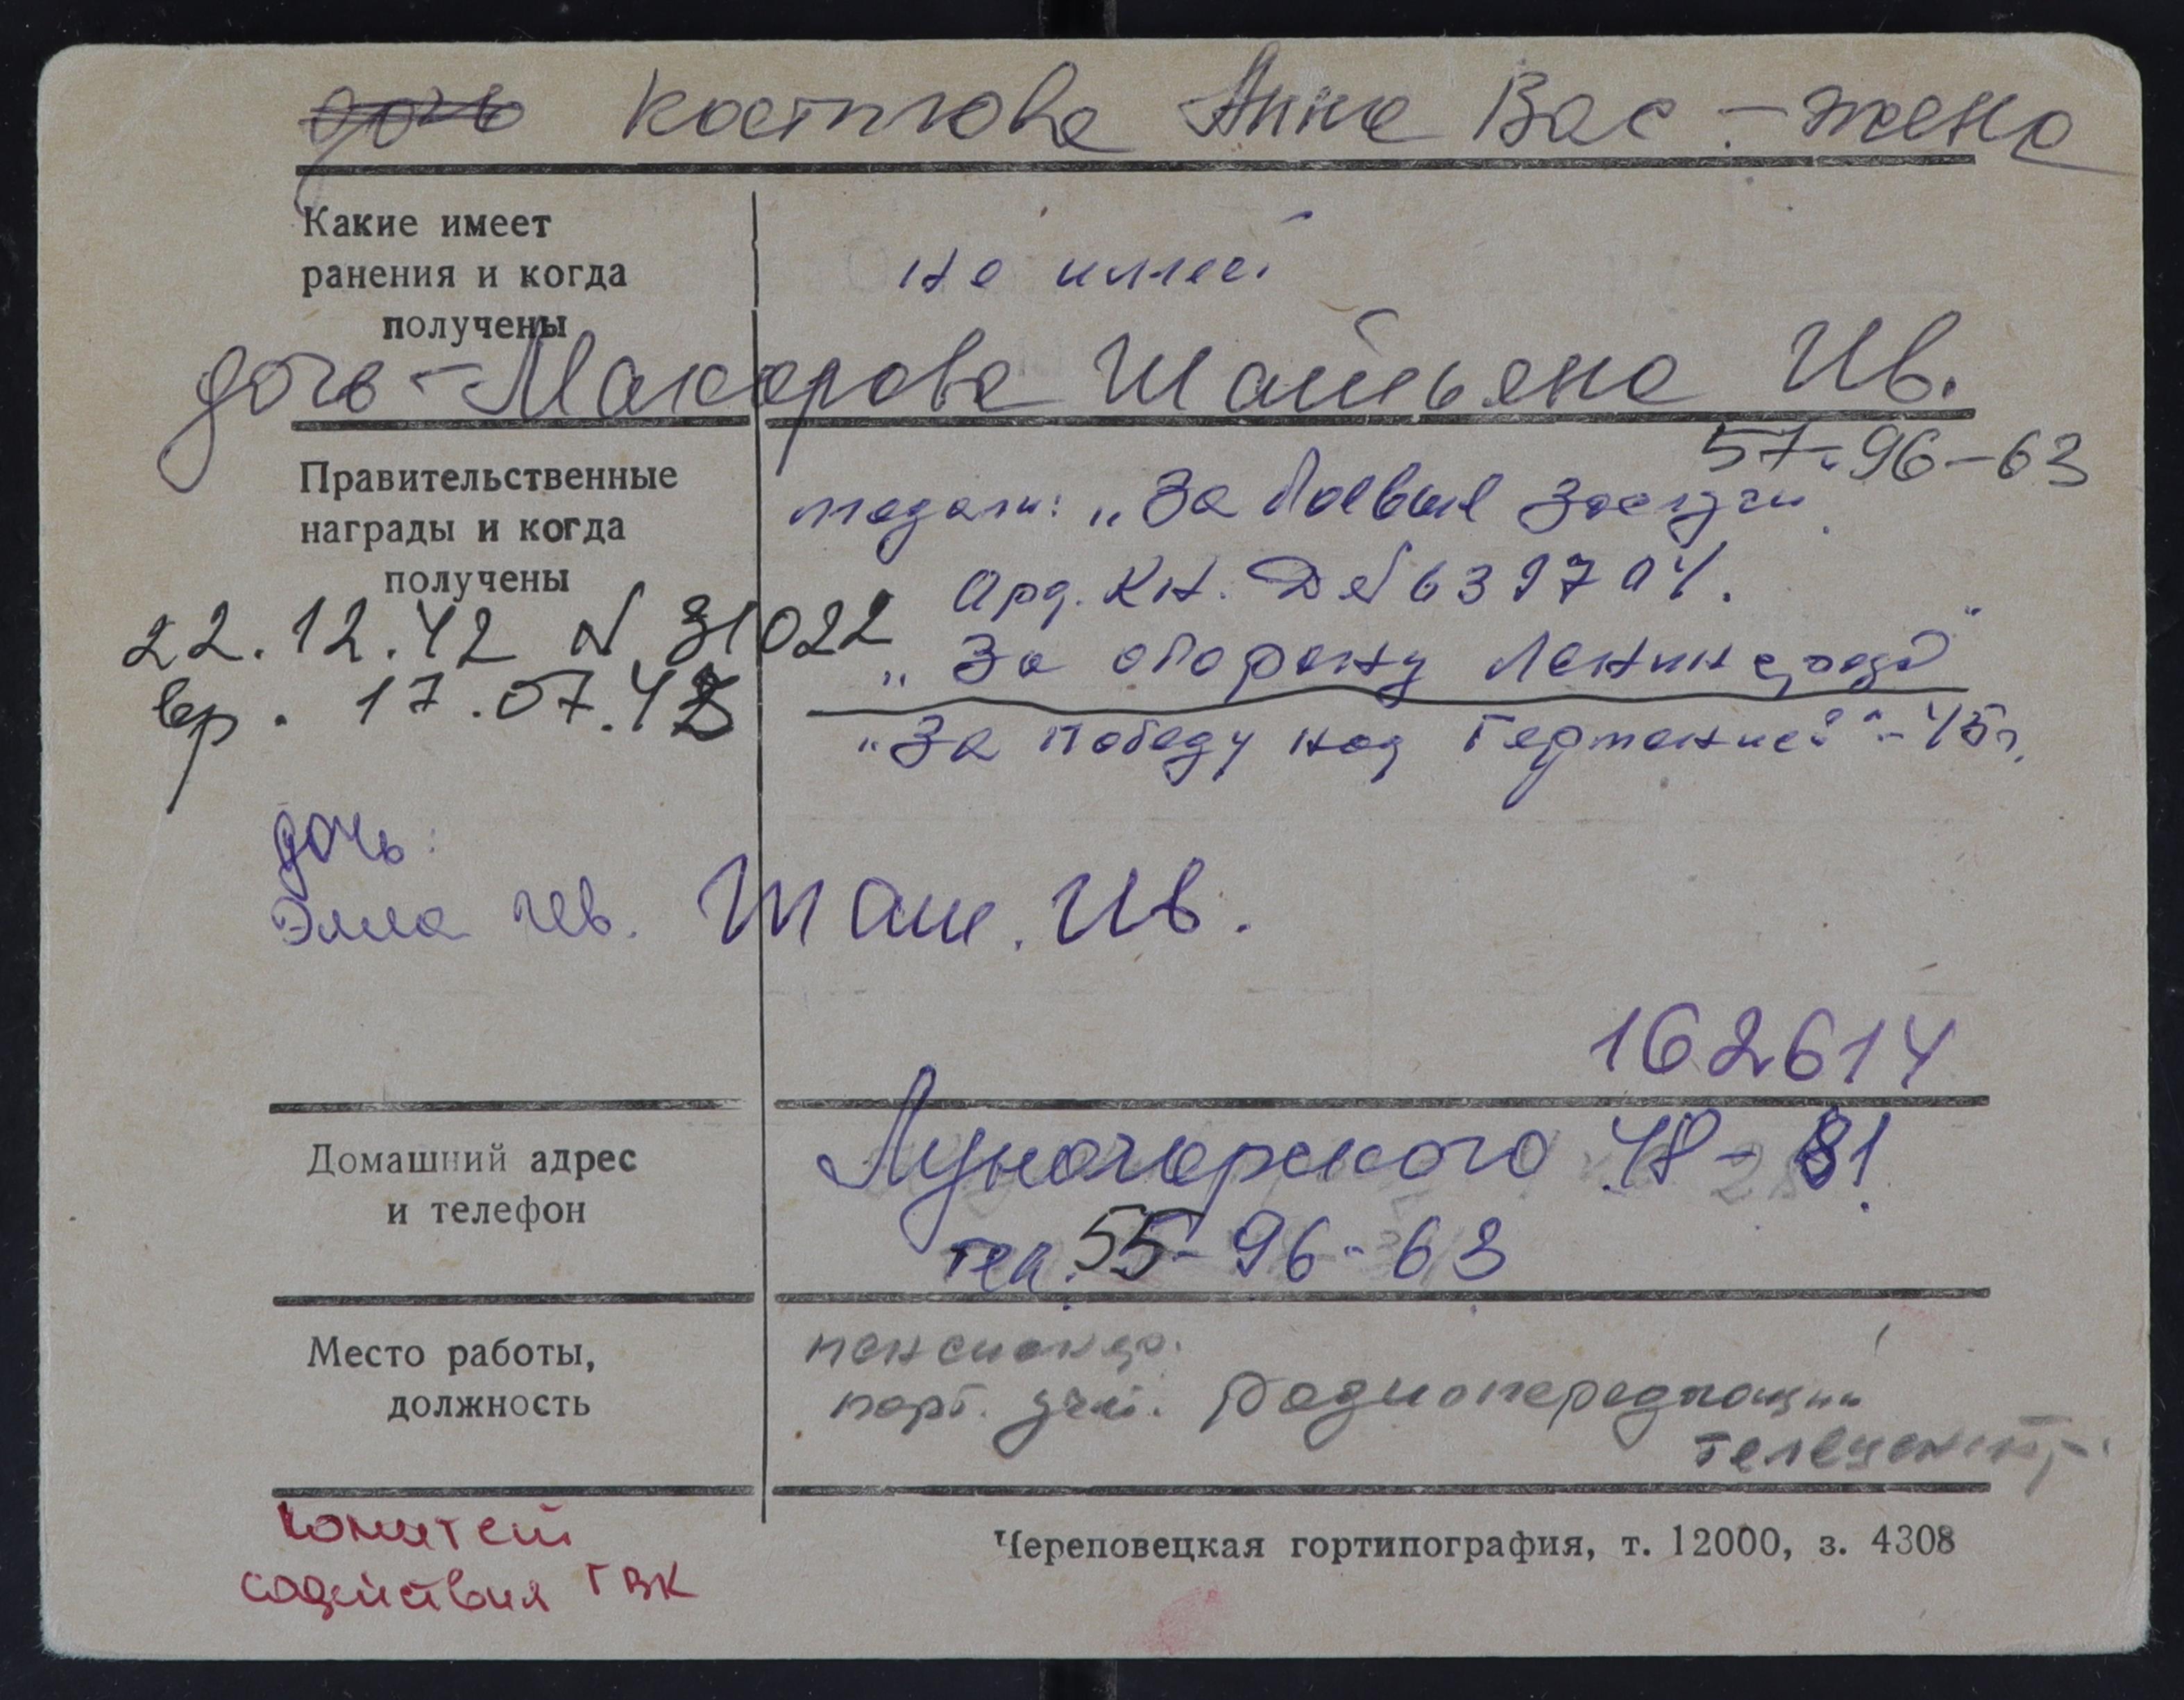 дочь Костюгова Анна Вас. - жена
Какие имеет
ранения и когда
получены
не имеет
дочь - Макарова Татьяна Ив.
57-96-63
Правительственные
награды и когда
получены
медали: „За боевые заслуги"
Орд. Кн. Д №639704.
22.12.42 N 31022
„За оборону Ленинграда"
вр. 17.07.43
„За победу над Германией" - 45 г.
дочь:
Элла Ив. Тат. Ив.
162614
Домашний адрес
и телефон
Луначарского 48-81
тел. 55-96-63
Место работы,
должность
пенсионер.
парт. учет. Радиопередающий
телецентр.
Комитет
содействия ГВК
Череповецкая гортипография, т. 12000, з. 4308